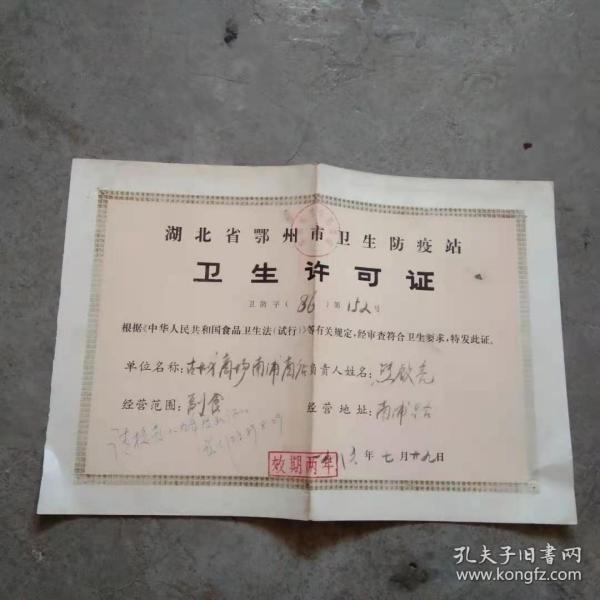 湖北省鄂州市卫生防疫站
卫生许可证
卫防字(86)第152号
根据《中华人民共和国食品卫生法(试行)》等有关规定,经审查符合卫生要求,特发此证。
单位名称:古楼商场南浦商店负责人姓名:
经营范围:副食 经营地址:南浦路
效期两年 年七月廿九日
孔夫子旧书网
www.kongfz.com